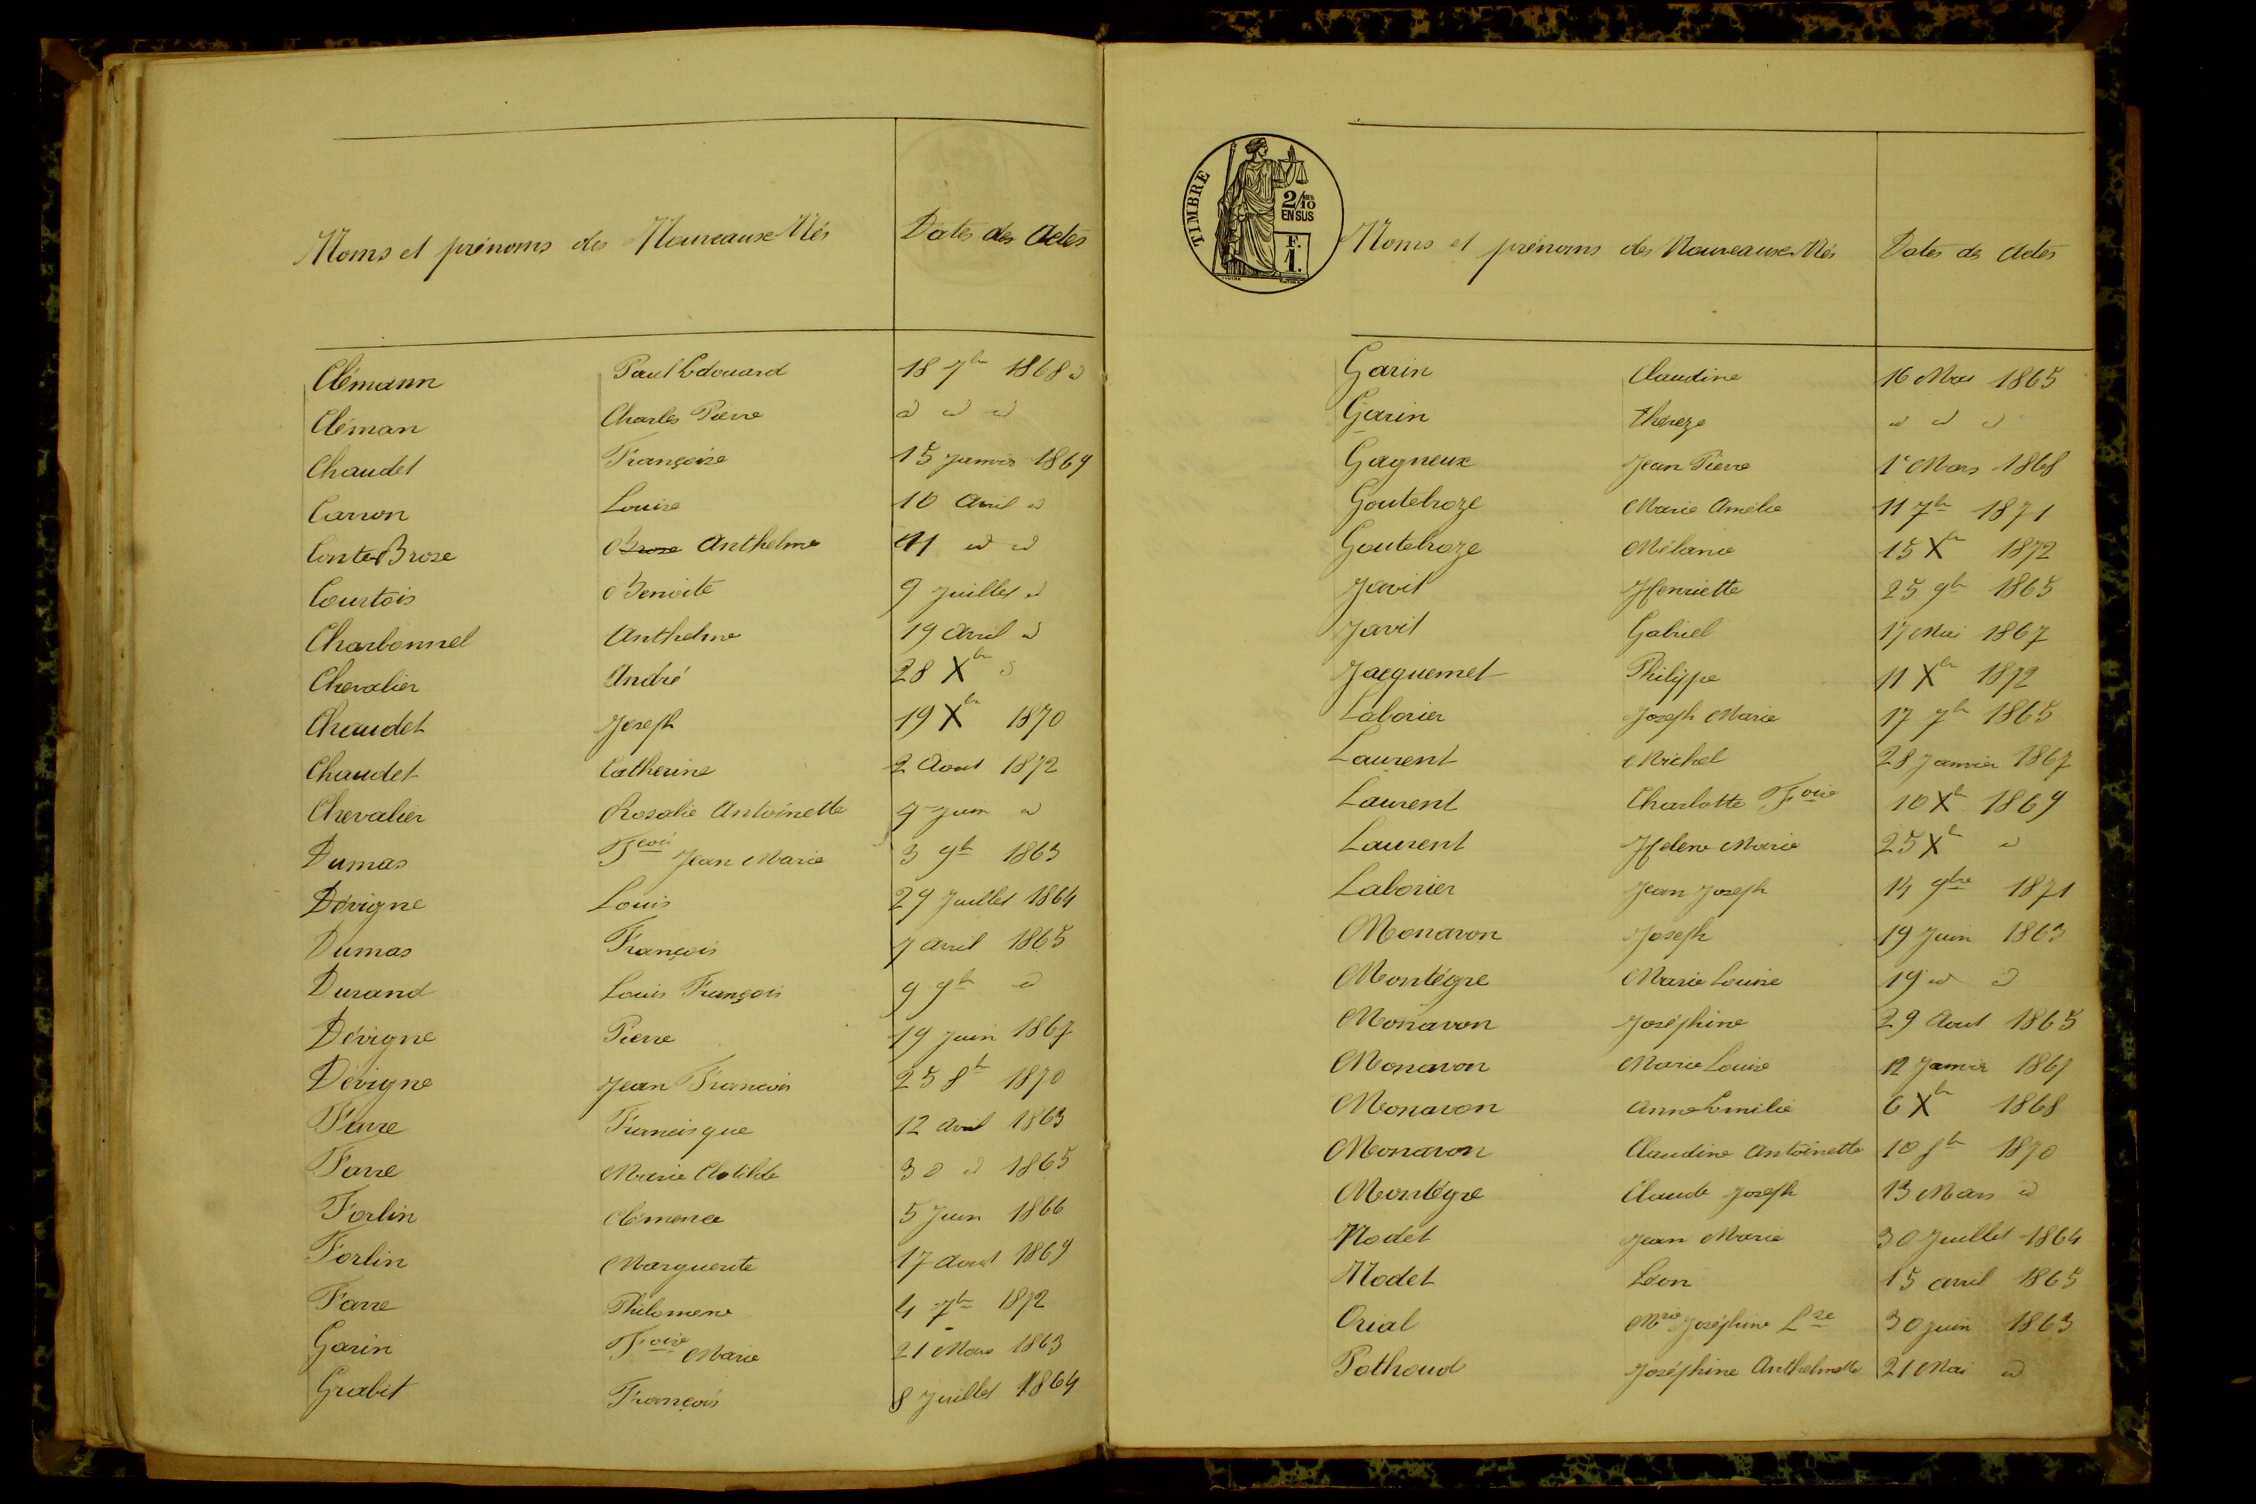 Noms et prénoms des Nouveaux Nés Dates des Actes
Clémann Paul Edouard 18 7bre 1868 d
Cléman Charles Pierre d d d
Chaudet Françoise 15 Janvier 1869
Carron Louise 10 Avril d
Conte Brose Brose Anthelme 11 d d
Courtois Benoite 9 Juillet d
Charbonnel Anthelme 19 Avril d
Chevalier André 28 Xbre d
Chaudet Joseph 19 Xbre 1870
Chaudet Catherine 2 Aout 1872
Chevalier Rosalie Antoinette 9 Juin d
Dumas Fcois Jean Marie 3 9bre 1863
Dévigne Louis 29 Juillet 1864
Dumas François 7 Avril 1865
Durand Louis François 9 9bre d
Dévigne Pierre 19 Juin 1867
Dévigne Jean Francois 25 8bre 1870
Farre Francisque 12 Avril 1863
Farre Marie Clotilde 30 d 1865
Forlin Clémence 5 Juin 1866
Forlin Marguerite 17 Aout 1869
Farre Philomene 4 7bre 1872
Garin Foise Marie 21 Mars 1863
Grabit François 8 Juillet 1864
TIMBRE
2/10es
EN SUS
F.
1.
Noms et prénoms des Nouveaux Nés Dates des Actes
Garin Claudine 16 Mai 1865
Garin Thereze d d d
Gagneux Jean Pierre 1r Mars 1868
Goutebroze Marie Amélie 11 7bre 1871
Goutebroze Mélanie 15 Xbre 1872
Javit Henriette 25 9bre 1865
Javit Gabriel 17 Mai 1867
Jacquemet Philippe 11 Xbre 1872
Laborier Joseph Marie 17 7bre 1865
Laurent Michel 28 Janvier 1867
Laurent Charlotte Foise 10 Xbre 1869
Laurent Helene Marie 25 Xbre d
Laborier Jean Joseph 14 9bre 1871
Monavon Joseph 19 Juin 1863
Montégre Marie Louise 19 d d
Monavon Joséphine 29 Aout 1865
Monavon Marie Louise 12 Janvier 1867
Monavon Anne Emilie 6 Xbre 1868
Monavon Claudine Antoinette 10 8bre 1870
Montégre Claude Joseph 13 Mars d
Nodet Jean Marie 30 Juillet 1864
Nodet Léon 15 Avril 1865
Orial Mrie Joséphine Lse 30 Juin 1863
Pothoud Joséphine Anthelmette 21 Mai d